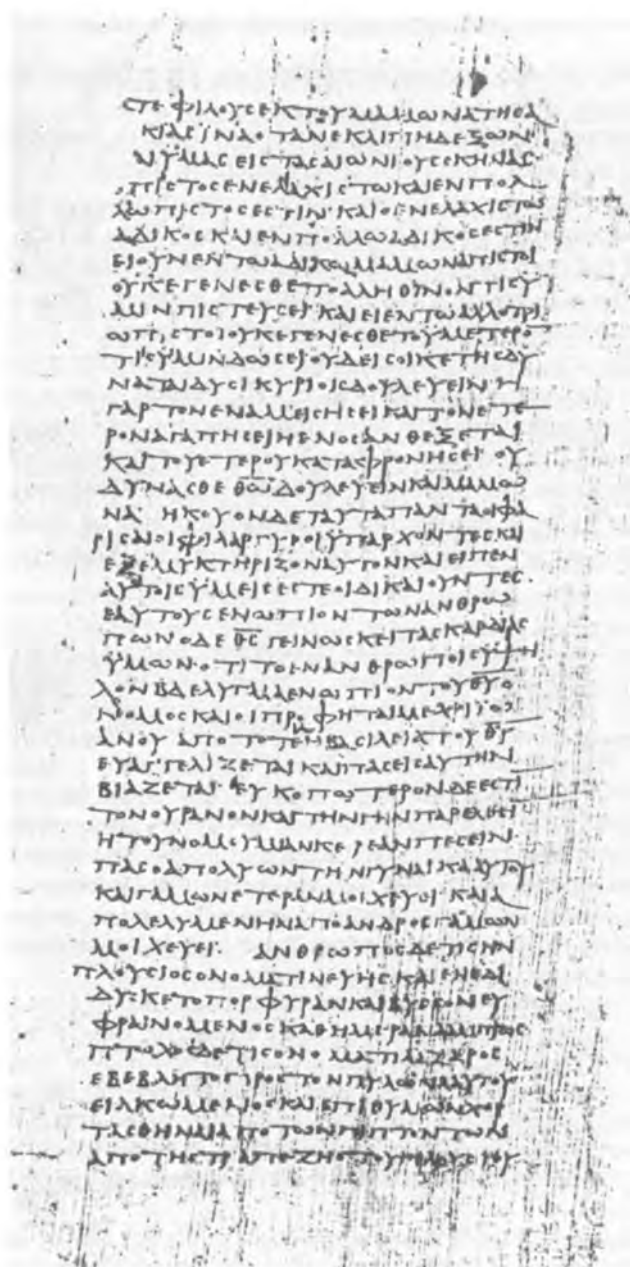 ϹΤΕΦΙΛΟΥϹΕΚΤΟΥΜΑΜΩΝΑΤΗϹΑ
ΚΙΑϹΙΝΑΟΤΑΝΕΚΛΙΠΗΔΕΞΩΝ
ΑΙΫΜΑϹΕΙϹΤΑϹΑΙΩΝΙΟΥϹϹΚΗΝΑϹ
ΟΠΙϹΤΟϹΕΝΕΛΑΧΙϹΤΩΚΑΙΕΝΠΟΛ
ΛΩΠΙϹΤΟϹΕϹΤΙΝ·ΚΑΙΟΕΝΕΛΑΧΙϹΤΩ
ΑΔΙΚΟϹΚΑΙΕΝΠΟΛΛΩΑΔΙΚΟϹΕϹΤΙΝ
ΕΙΟΥΝΕΝΤΩΑΔΙΚΩΜΑΜΩΝΑΠΙϹΤΟΙ
ΟΥΚΕΓΕΝΕϹΘΕΤΟΑΛΗΘΙΝΟΝΤΙϹΫ
ΜΙΝΠΙϹΤΕΥϹΕΙ·ΚΑΙΕΙΕΝΤΩΑΛΛΟΤΡΙ
ΩΠΙϹΤΟΙΟΥΚΕΓΕΝΕϹΘΕΤΟΫΜΕΤΕΡΟ
ΤΙϹΫΜΙΝΔΩϹΕΙ·ΟΥΔΕΙϹΟΙΚΕΤΗϹΔΥ
ΝΑΤΑΙΔΥϹΙΚΥΡΙΟΙϹΔΟΥΛΕΥΕΙΝΗ
ΓΑΡΤΟΝΕΝΑΜΕΙϹΗϹΕΙΚΑΙΤΟΝΕΤΕ
ΡΟΝΑΓΑΠΗϹΕΙΗΕΝΟϹΑΝΘΕΞΕΤΑΙ
ΚΑΙΤΟΥΕΤΕΡΟΥΚΑΤΑΦΡΟΝΗϹΕΙ·ΟΥ
ΔΥΝΑϹΘΕΘΩΔΟΥΛΕΥΕΙΝΚΑΙΜΑΜΩ
ΝΑ·ΗΚΟΥΟΝΔΕΤΑΥΤΑΠΑΝΤΑΟΙΦΑ
ΡΙϹΑΙΟΙΦΙΛΑΡΓΥΡΟΙΫΠΑΡΧΟΝΤΕϹΚΑΙ
ΕΞΕΜΥΚΤΗΡΙΖΟΝΑΥΤΟΝΚΑΙΕΙΠΕΝ
ΑΥΤΟΙϹΫΜΕΙϹΕϹΤΕΟΙΔΙΚΑΙΟΥΝΤΕϹ
ΕΑΥΤΟΥϹΕΝΩΠΙΟΝΤΩΝΑΝΘΡΩ
ΠΩΝΟΔΕΘϹΓΕΙΝΩϹΚΕΙΤΑϹΚΑΡΔΙΑϹ
ΫΜΩΝ·ΟΤΙΤΟΕΝΑΝΘΡΩΠΟΙϹΫΨΗ
ΛΟΝΒΔΕΛΥΓΜΑΕΝΩΠΙΟΝΤΟΥΘΥΟ
ΝΟΜΟϹΚΑΙΟΙΠΡΟΦΗΤΑΙΜΕΧΡΙΪΩ
ΑΝΟΥΑΠΟΤΟΤΕΗΒΑϹΙΛΕΙΑΤΟΥΘΥ
ΕΥΑΓΓΕΛΙΖΕΤΑΙΚΑΙΠΑϹΕΙϹΑΥΤΗΝ
ΒΙΑΖΕΤΑΙ·ΕΥΚΟΠΩΤΕΡΟΝΔΕΕϹΤΙ
ΤΟΝΟΥΡΑΝΟΝΚΑΙΤΗΝΓΗΝΠΑΡΕΛΘΕΙ
ΗΤΟΥΝΟΜΟΥΜΙΑΝΚΕΡΕΑΝΠΕϹΕΙΝ
ΠΑϹΟΑΠΟΛΥΩΝΤΗΝΓΥΝΑΙΚΑΑΥΤΟΥ
ΚΑΙΓΑΜΩΝΕΤΕΡΑΝΜΟΙΧΕΥΕΙΚΑΙΑ
ΠΟΛΕΛΥΜΕΝΗΝΑΠΟΑΝΔΡΟϹΓΑΜΩΝ
ΜΟΙΧΕΥΕΙ·ΑΝΘΡΩΠΟϹΔΕΤΙϹΗΝ
ΠΛΟΥϹΙΟϹΟΝΟΜΑΤΙΝΕΥΗϹΚΑΙΕΝΕΔΙ
ΔΥϹΚΕΤΟΠΟΡΦΥΡΑΝΚΑΙΒΥϹϹΟΝΕΥ
ΦΡΑΙΝΟΜΕΝΟϹΚΑΘΗΜΕΡΑΝΛΑΜΠΡΩϹ
ΠΤΩΧΟϹΔΕΤΙϹΟΝΟΜΑΤΙΛΑΖΑΡΟϹ
ΕΒΕΒΛΗΤΟΠΡΟϹΤΟΝΠΥΛΩΝΑΑΥΤΟΥ
ΕΙΛΚΩΜΕΝΟϹΚΑΙΕΠΙΘΥΜΩΝΧΟΡ
ΤΑϹΘΗΝΑΙΑΠΟΤΩΝΠΙΠΤΟΝΤΩΝ
ΑΠΟΤΗϹΤΡΑΠΕΖΗϹΤΟΥΠΛΟΥϹΙΟΥ